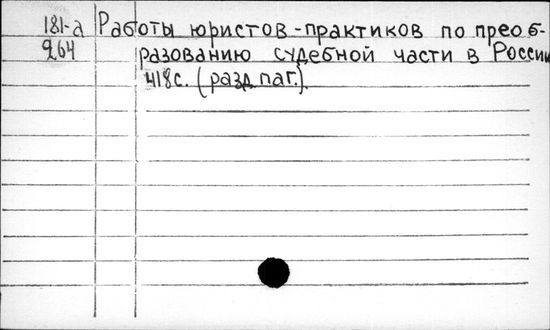 181-а Работы юристов-практиков по преоб-
264 разованию судебной части в России
418с. (разд. паг.).